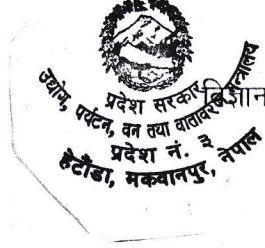 प्रदेश सरकार
उद्योग, पर्यटन, वन तथा वातावरण मन्त्रालय
प्रदेश नं. ३
हेटौंडा, मकवानपुर, नेपाल
विज्ञान